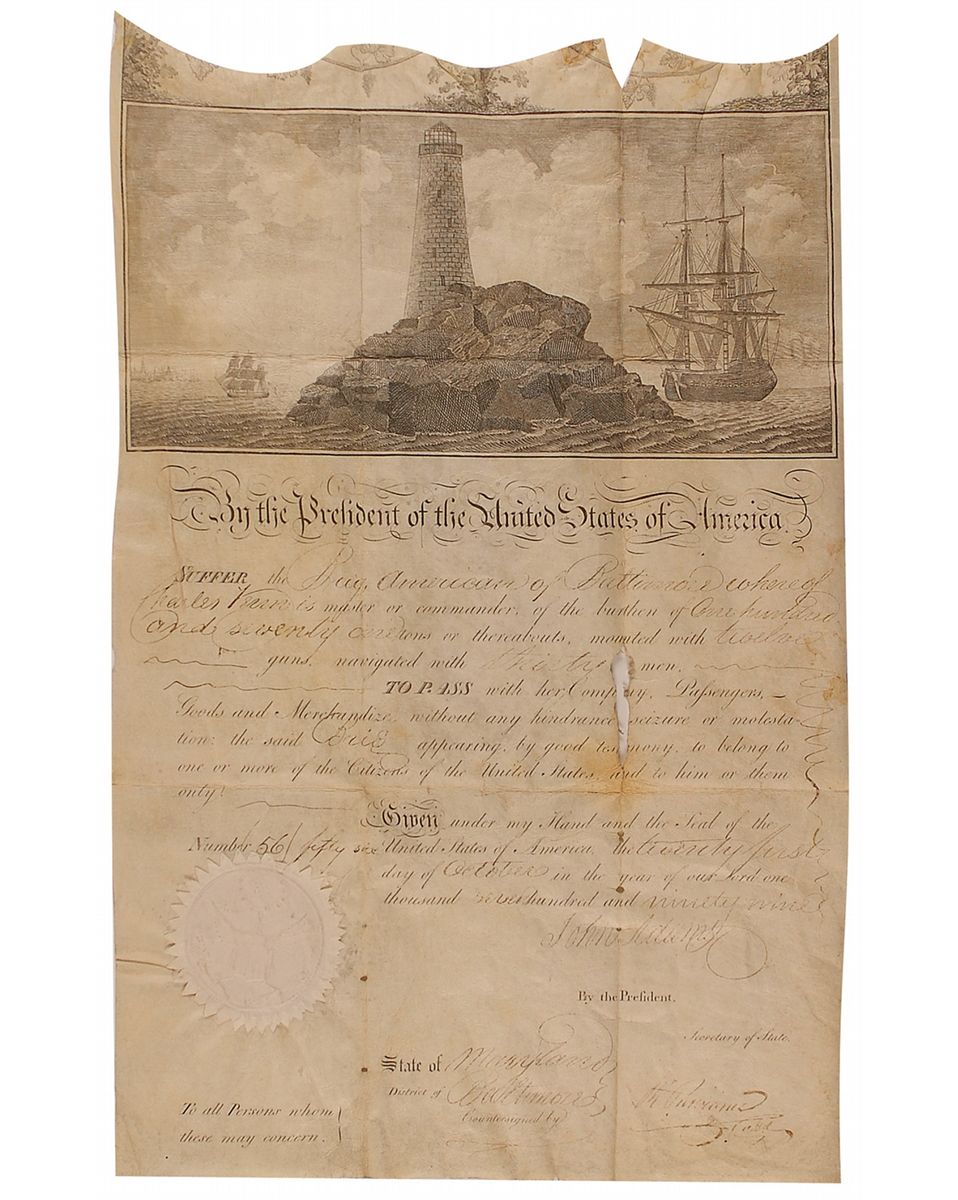 By the President of the United States of America.
SUFFER the Brig American of Baltimore where of
Charles is master or commander, of the burthen of One hundred
and seventy one tons or thereabouts, mounted with twelve
guns, navigated with thirty men,
TO PASS with her Company, Passengers,
Goods and Merchandize without any hindrance seizure or molesta-
tion: the said Brig appearing by good testimony, to belong to
one or more of the Citizens of the United States, and to him or them
only!
Given under my Hand and the Seal of the
Number 56 / fifty six United States of America, the twenty first
day of October in the year of our Lord one
thousand seven hundred and ninety nine
John Adams
By the President.
Secretary of State.
State of Maryland
District of Baltimore
Countersigned by
To all Persons whom
these may concern.